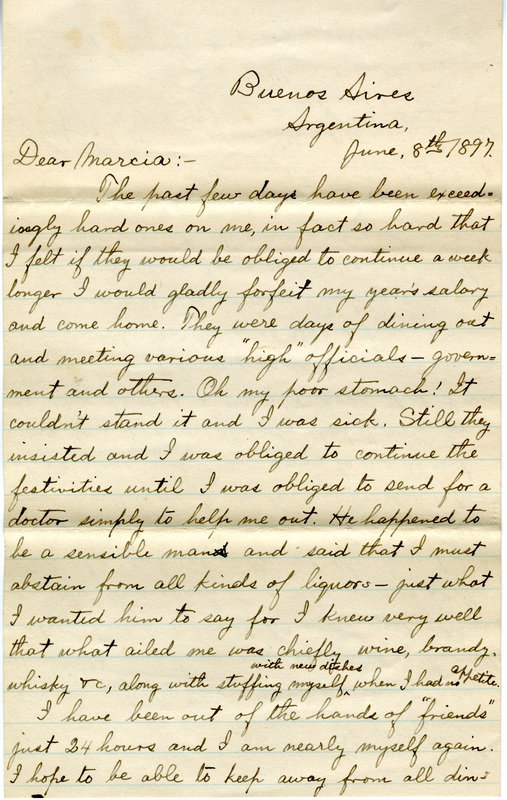 Buenos Aires
Argentina,
June, 8th 1897.
Dear Marcia:-
The past few days have been exceed=
ingly hard ones on me, in fact so hard that
I felt if they would be obliged to continue a week
longer I would gladly forfeit my year's salary
and come home. They were days of dining out
and meeting various "high" officials - govern=
ment and others. Oh my poor stomach! It
couldn't stand it and I was sick. Still they
insisted and I was obliged to continue the
festivities until I was obliged to send for a
doctor simply to help me out. He happened to
be a sensible man and said that I must
abstain from all kinds of liquors - just what
I wanted him to say for I knew very well
that what ailed me was chiefly wine, brandy,
with new dishes
whisky &c, along with stuffing myself ^ when I had no appetite.
I have been out of the hands of "friends"
just 24 hours and I am nearly myself again.
I hope to be able to keep away from all din=